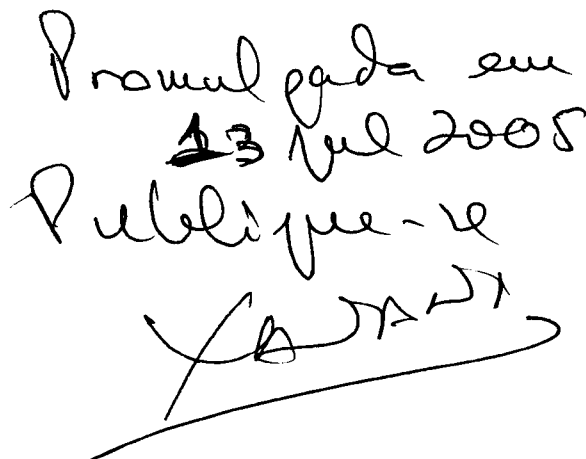 Promulgada em
13 jul 2005
Publique-se